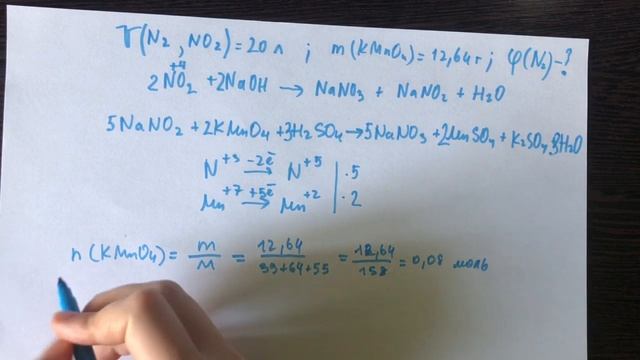 V(N₂, NO₂) = 20 л ; m(KMnO₄) = 12,64 г ; φ(N₂) - ?
2N⁺⁴O₂ + 2NaOH → NaNO₃ + NaNO₂ + H₂O
5NaNO₂ + 2KMnO₄ + 3H₂SO₄ → 5NaNO₃ + 2MnSO₄ + K₂SO₄ 3H₂O
N⁺³ -2ē → N⁺⁵ | ·5
Mn⁺⁷ +5ē → Mn⁺² | ·2
n(KMnO₄) = m/M = 12,64/39+64+55 = 12,64/158 = 0,08 моль